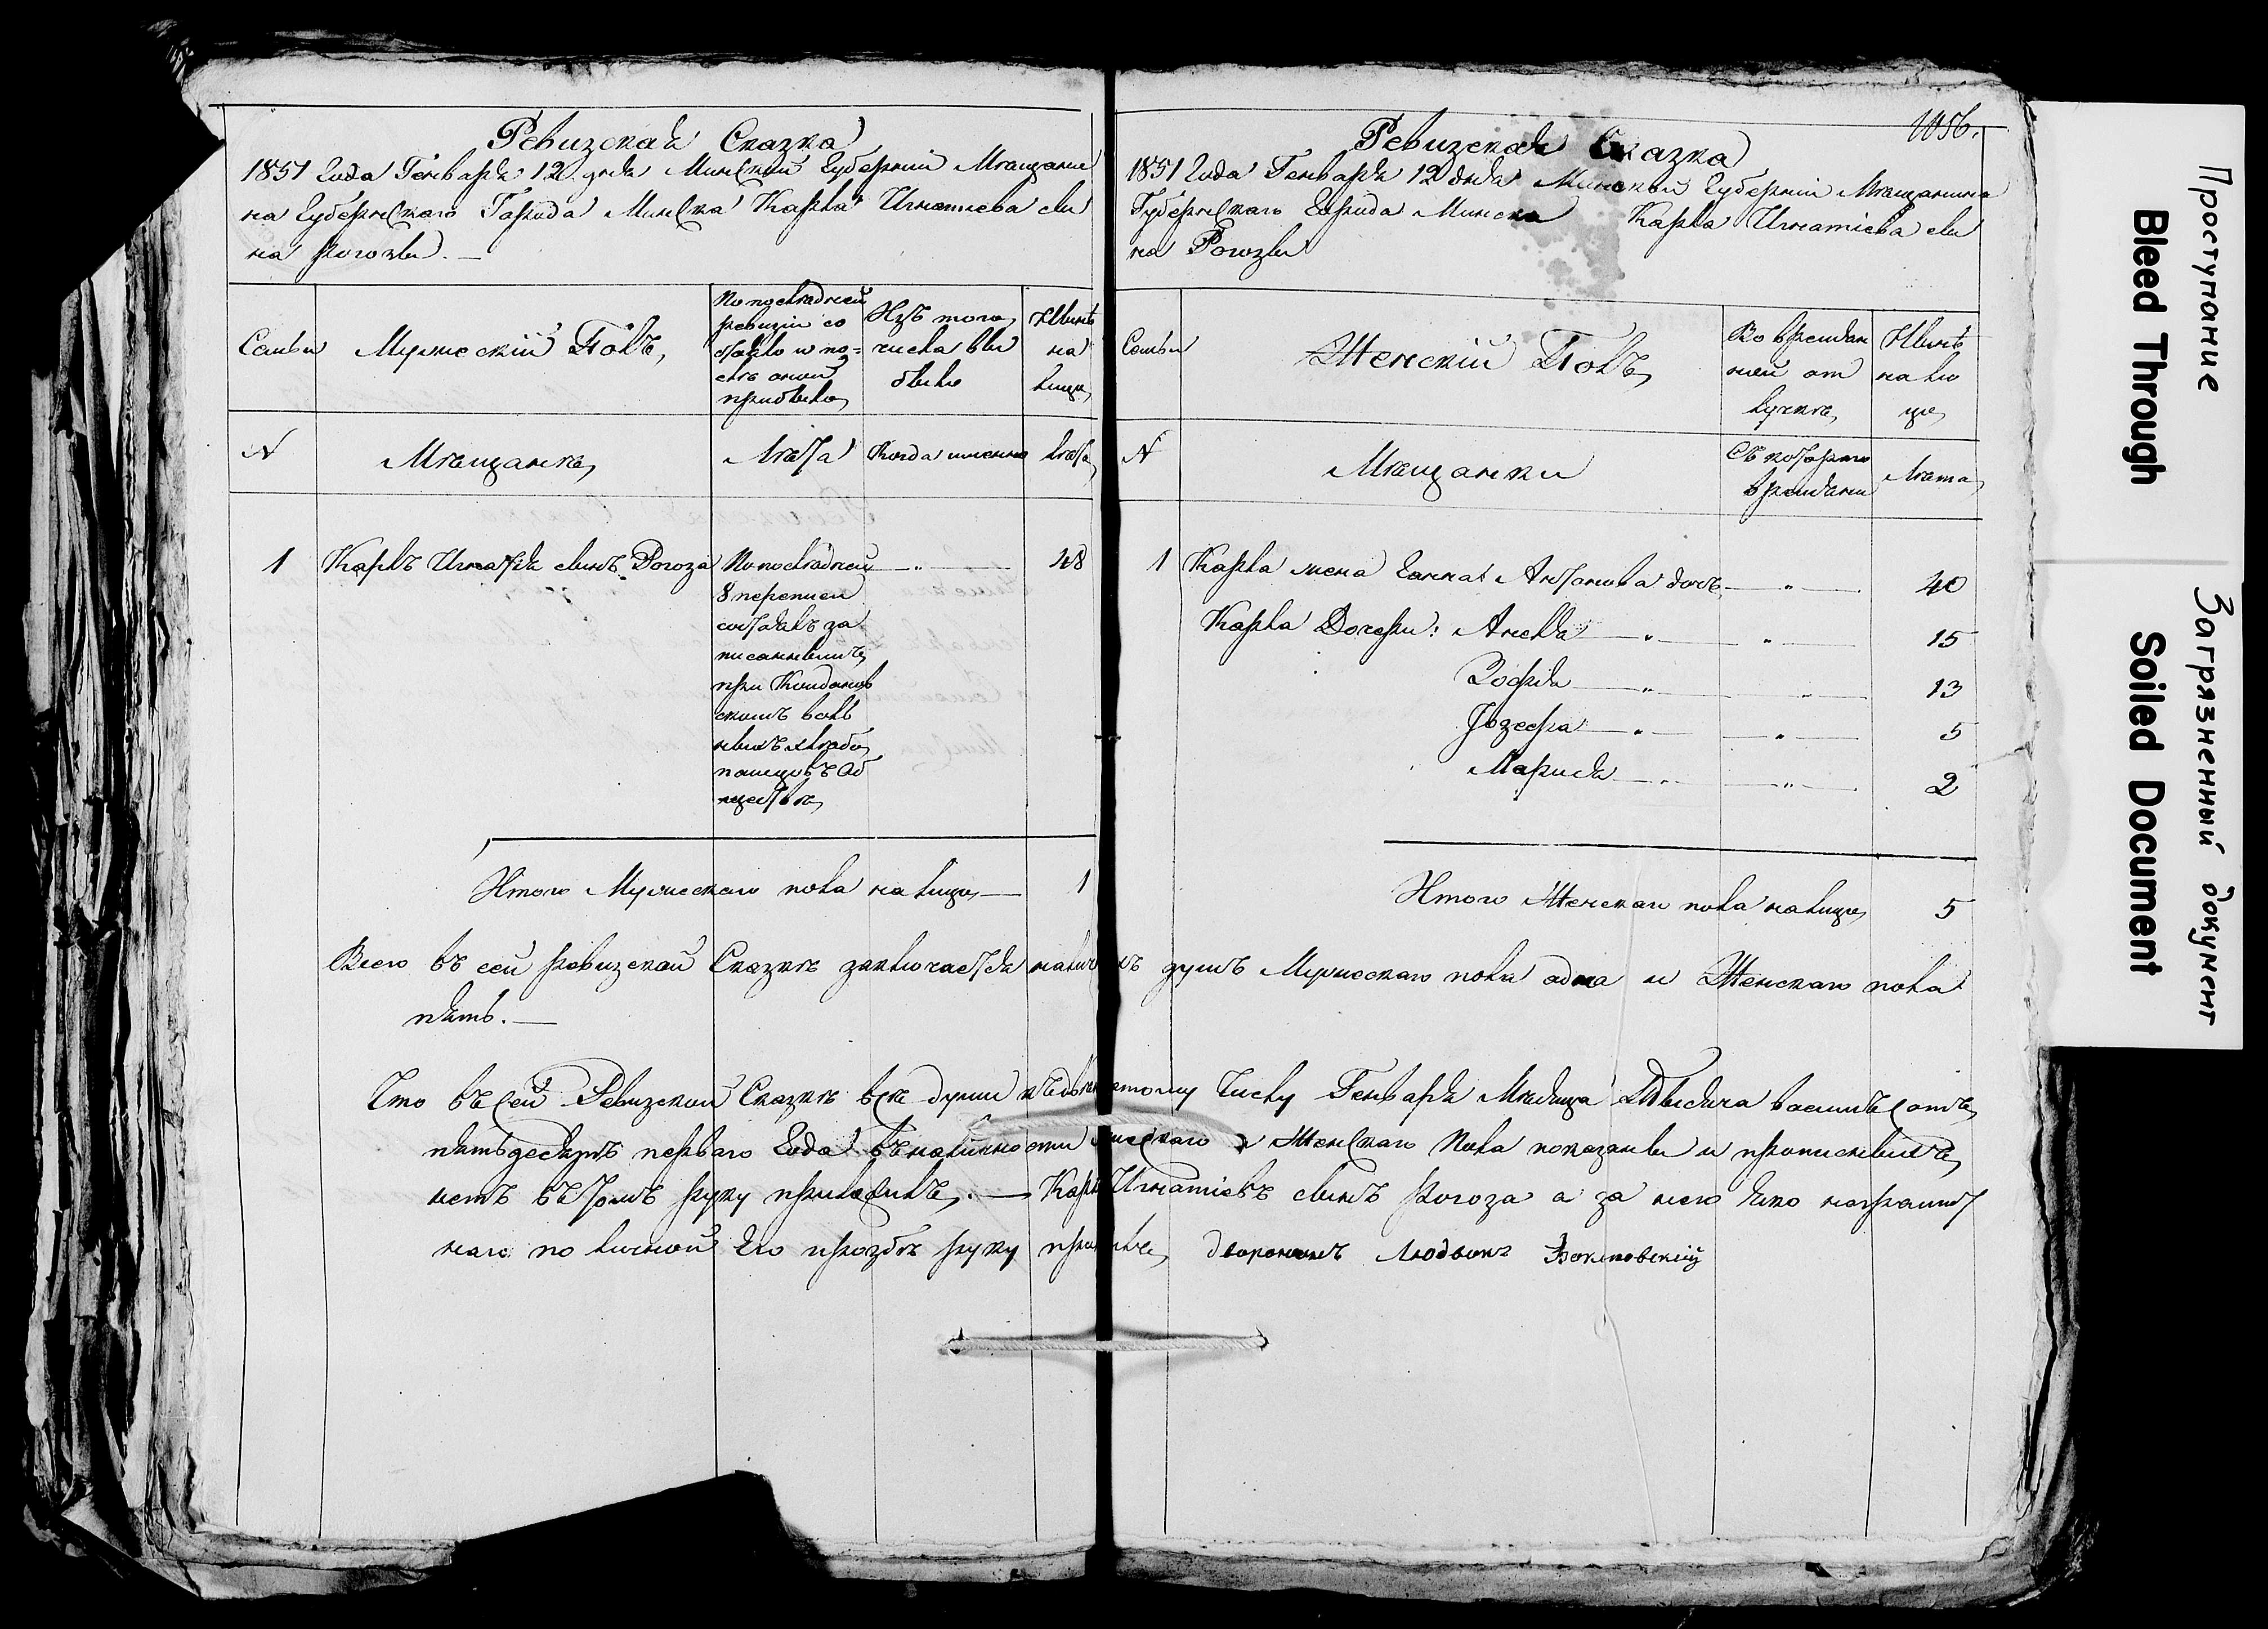 Ревизская Сказка
1851 Года Генваря 12 дня Минской Губерніи Мѣщани
на Губернскаго Города Минска Карла Игнатіева сы
на Рогозы. —
Семьи
Мужескій Полъ,
По последней
ревизіи со
стояло и по=
слѣ оной
прибыло,
Изъ того
числа вы
было
Нынѣ
на
лице,
N
Мѣщанѣ,
Лѣта
Когда именно
Лѣта,
1 Карлъ Игнатья сынъ Рогоза
По последней
8 переписи
состоялъ за
писаннымъ
при Койданов
скомъ воль
ныхъ хлебо
пашцовъ Об
ществѣ,
— „ —
48
Итого Мужескаго пола на лице, — 1
1056.
Ревизская Сказка
1851 Года Генваря 12 дня Минской Губерніи Мѣщанина
Губернскаго Города Минска Карла Игнатіева сы
на Рогозы
Семьи
Женскій Полъ,
Во времян
ной от
лучкѣ,
Нынѣ
на ли
це,
N
Мѣщанки
Съ котораго
времяни
Лѣта,
1 Карла жена Ганна Антонова дочь — „ — 40
Карла Дочери: Анеля — „ — „ — 15
Зофія — „ — „ — 13
Іозефа — „ — „ — 5
Марися — „ — „ — 2
Итого Женскаго пола на лице, 5
Всего въ сей ревизской Сказкѣ заключается налич хъ душъ Мужескаго пола одна и Женскаго пола
пять. —
Что въ сей Ревизской Сказкѣ все души къ девятому Числу Генваря Мѣсяца Тысяча восимъ сотъ,
пять десятъ перваго Года въ наличности скаго и Женскаго Пола показаны и прописныхъ
нетъ въ томъ руку приложилъ. — Карл Игнатіевъ сынъ Рогоза а за него яко неграмот
наго по личной Его прозбѣ руку при лъ, дворянинъ Людвикъ
Проступание Загрязненный документ
Bleed Through Soiled Document